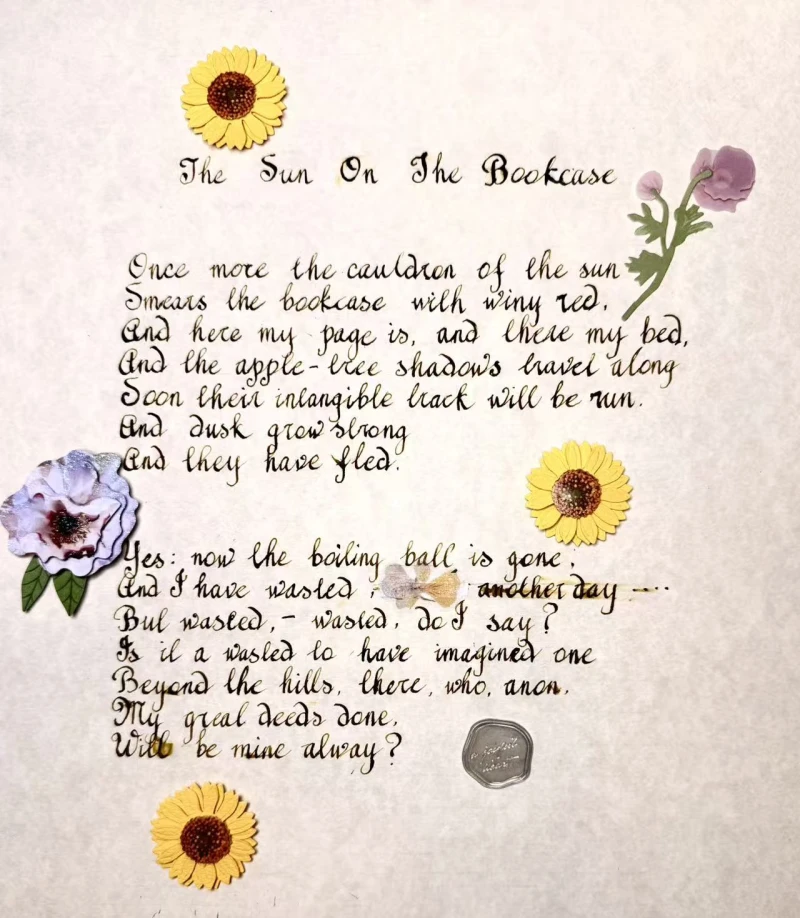 The Sun On The Bookcase
Once more the cauldron of the sun
Smears the bookcase with winy red,
And here my page is, and there my bed,
And the apple-tree shadows travel along
Soon their intangible track will be run.
And dusk grow strong
And they have fled.
Yes: now the boiling ball is gone,
And I have wasted, another day -..
But wasted, - wasted, do I say?
Is it a wasted to have imagined one
Beyond the hills, there, who, anon,
My great deeds done,
Will be mine alway?